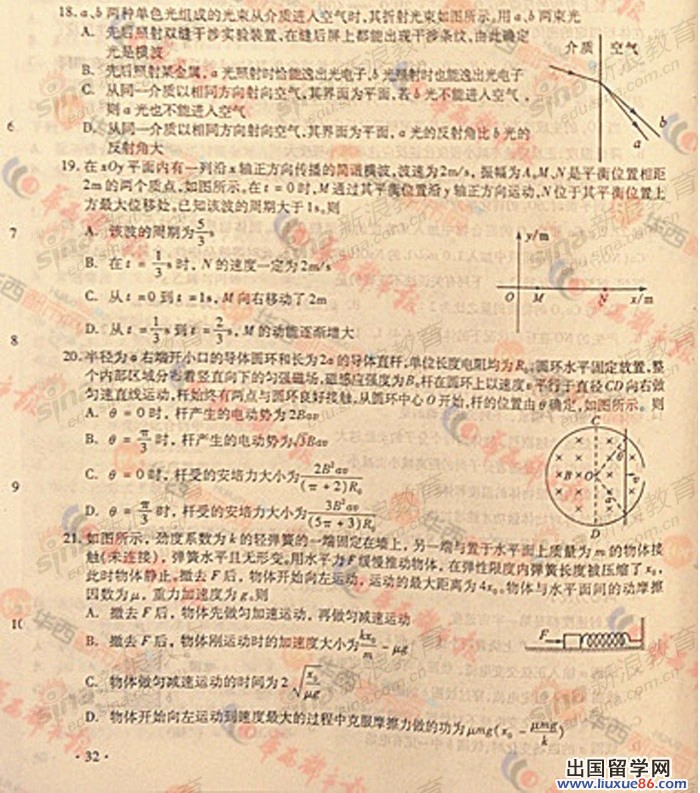 18. a、b两种单色光组成的光束从介质进入空气时,其折射光束如图所示。用a、b两束光
A. 先后照射双缝干涉实验装置,在缝后屏上都能出现干涉条纹,由此确定
光是横波
B. 先后照射某金属,a光照射时恰能逸出光电子,b光照射时也能逸出光电子
C. 从同一介质以相同方向射向空气,其界面为平面,若b光不能进入空气,
则a光也不能进入空气
D. 从同一介质以相同方向射向空气,其界面为平面,a光的反射角比b光的
反射角大
介质 空气
b
a
19. 在xOy平面内有一列沿x轴正方向传播的简谐横波,波速为2m/s,振幅为A。M、N是平衡位置相距
2m的两个质点,如图所示。在t=0时,M通过其平衡位置沿y轴正方向运动,N位于其平衡位置上
方最大位移处。已知该波的周期大于1s。则
A. 该波的周期为5/3 s
B. 在t=1/3 s时,N的速度一定为2m/s
C. 从t=0到t=1s,M向右移动了2m
D. 从t=1/3 s到t=2/3 s,M的动能逐渐增大
y/m
O M N x/m
20. 半径为a右端开小口的导体圆环和长为2a的导体直杆,单位长度电阻均为R₀。圆环水平固定放置,整
个内部区域分布着竖直向下的匀强磁场,磁感应强度为B。杆在圆环上以速度v平行于直径CD向右做
匀速直线运动,杆始终有两点与圆环良好接触,从圆环中心O开始,杆的位置由θ确定,如图所示。则
A. θ=0时,杆产生的电动势为2Bav
B. θ=π/3时,杆产生的电动势为√3Bav
C. θ=0时,杆受的安培力大小为2B²av/(π+2)R₀
D. θ=π/3时,杆受的安培力大小为3B²av/(5π+3)R₀
C
B O θ v
D
21. 如图所示,劲度系数为k的轻弹簧的一端固定在墙上,另一端与置于水平面上质量为m的物体接
触(未连接),弹簧水平且无形变。用水平力F缓慢推动物体,在弹性限度内弹簧长度被压缩了x₀,
此时物体静止。撤去F后,物体开始向左运动,运动的最大距离为4x₀。物体与水平面间的动摩擦
因数为μ,重力加速度为g。则
A. 撤去F后,物体先做匀加速运动,再做匀减速运动
B. 撤去F后,物体刚运动时的加速度大小为kx₀/m-μg
C. 物体做匀减速运动的时间为2√(x₀/μg)
D. 物体开始向左运动到速度最大的过程中克服摩擦力做的功为μmg(x₀-μmg/k)
F
·32·
6
7
8
9
10
出国留学网
www.liuxue86.com